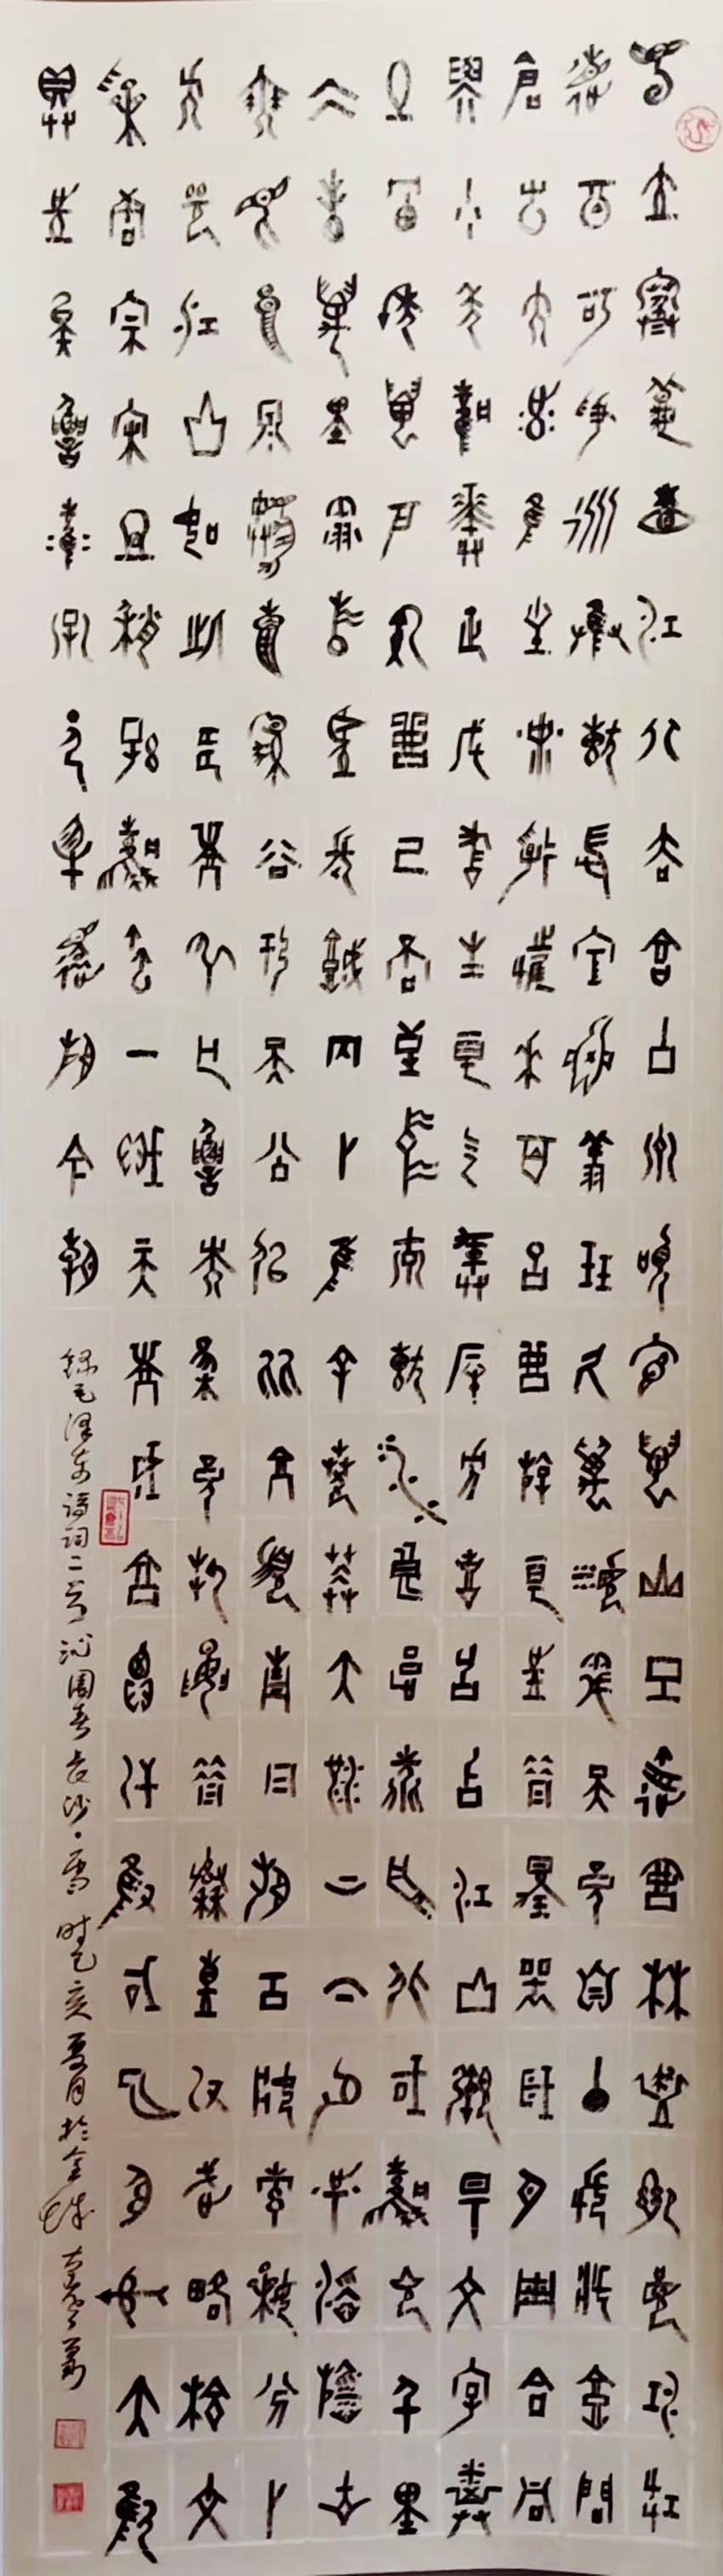 獨立寒秋湘江北去橘子洲頭看萬山紅遍層林盡染漫江碧
透百舸爭流鷹擊長空魚翔淺底萬類霜天競自由悵寥廓問
蒼茫大地誰主沉浮攜來百侶曾游憶往昔崢嶸歲月稠恰同
學少年風華正茂書生意氣揮斥方遒指點江山激揚文字糞
土當年萬戶侯曾記否到中流擊水浪遏飛舟北國風光千里
冰封萬里雪飄望長城內外惟餘莽莽大河上下頓失滔滔山
舞銀蛇原馳蠟象欲與天公試比高須晴日看紅裝素裹分外
妖嬈江山如此多嬌引無數英雄競折腰惜秦皇漢武略輸文
采唐宗宋祖稍遜風騷一代天驕成吉思汗只識彎弓射大雕
俱往矣數風流人物還看今朝
錄毛澤東詩詞二首沁園春長沙·雪 時乙亥夏月於金